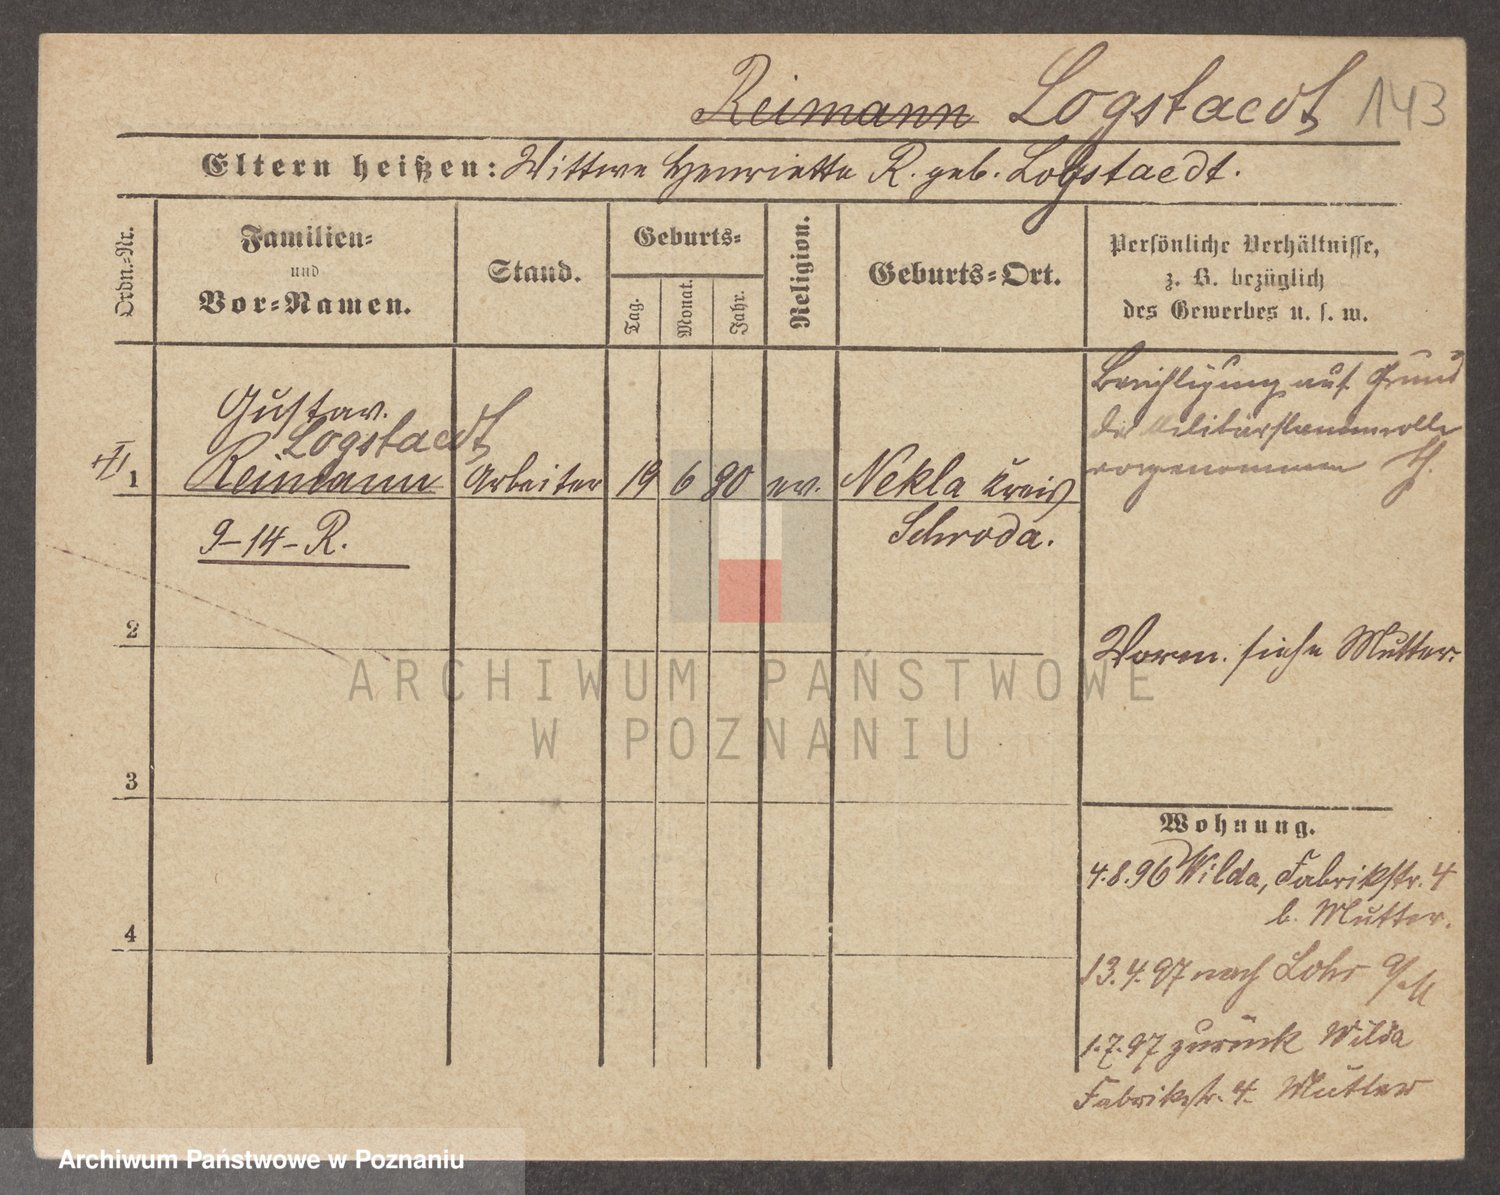 Reimann Logstaedt 143
Eltern heißen: Wittwe Henriette R. geb. Logstaedt.
Ordn.-Nr.
Familien-
und
Vor-Namen.
Stand.
Geburts-
Tag.
Monat.
Jahr.
Religion.
Geburts-Ort.
Persönliche Verhältnisse,
z. B. bezüglich
des Gewerbes u. s. w.
Gustav.
Logstaedt
1 Reimann Arbeiter 19 6 80 ev. Nekla Kreis
Schroda.
9-14-R.
Berichtigung auf Grund
der Militärstammrolle
vorgenommen
2
Vorm. siehe Mutter.
3
4
Wohnung.
4.8.96 Wilda, Fabrikstr. 4
b. Mutter.
13.4.97 nach Lohr a/M
1.7.97 zurück Wilda
Fabrikstr. 4. Mutter
ARCHIWUM PAŃSTWOWE
W POZNANIU
Archiwum Państwowe w Poznaniu